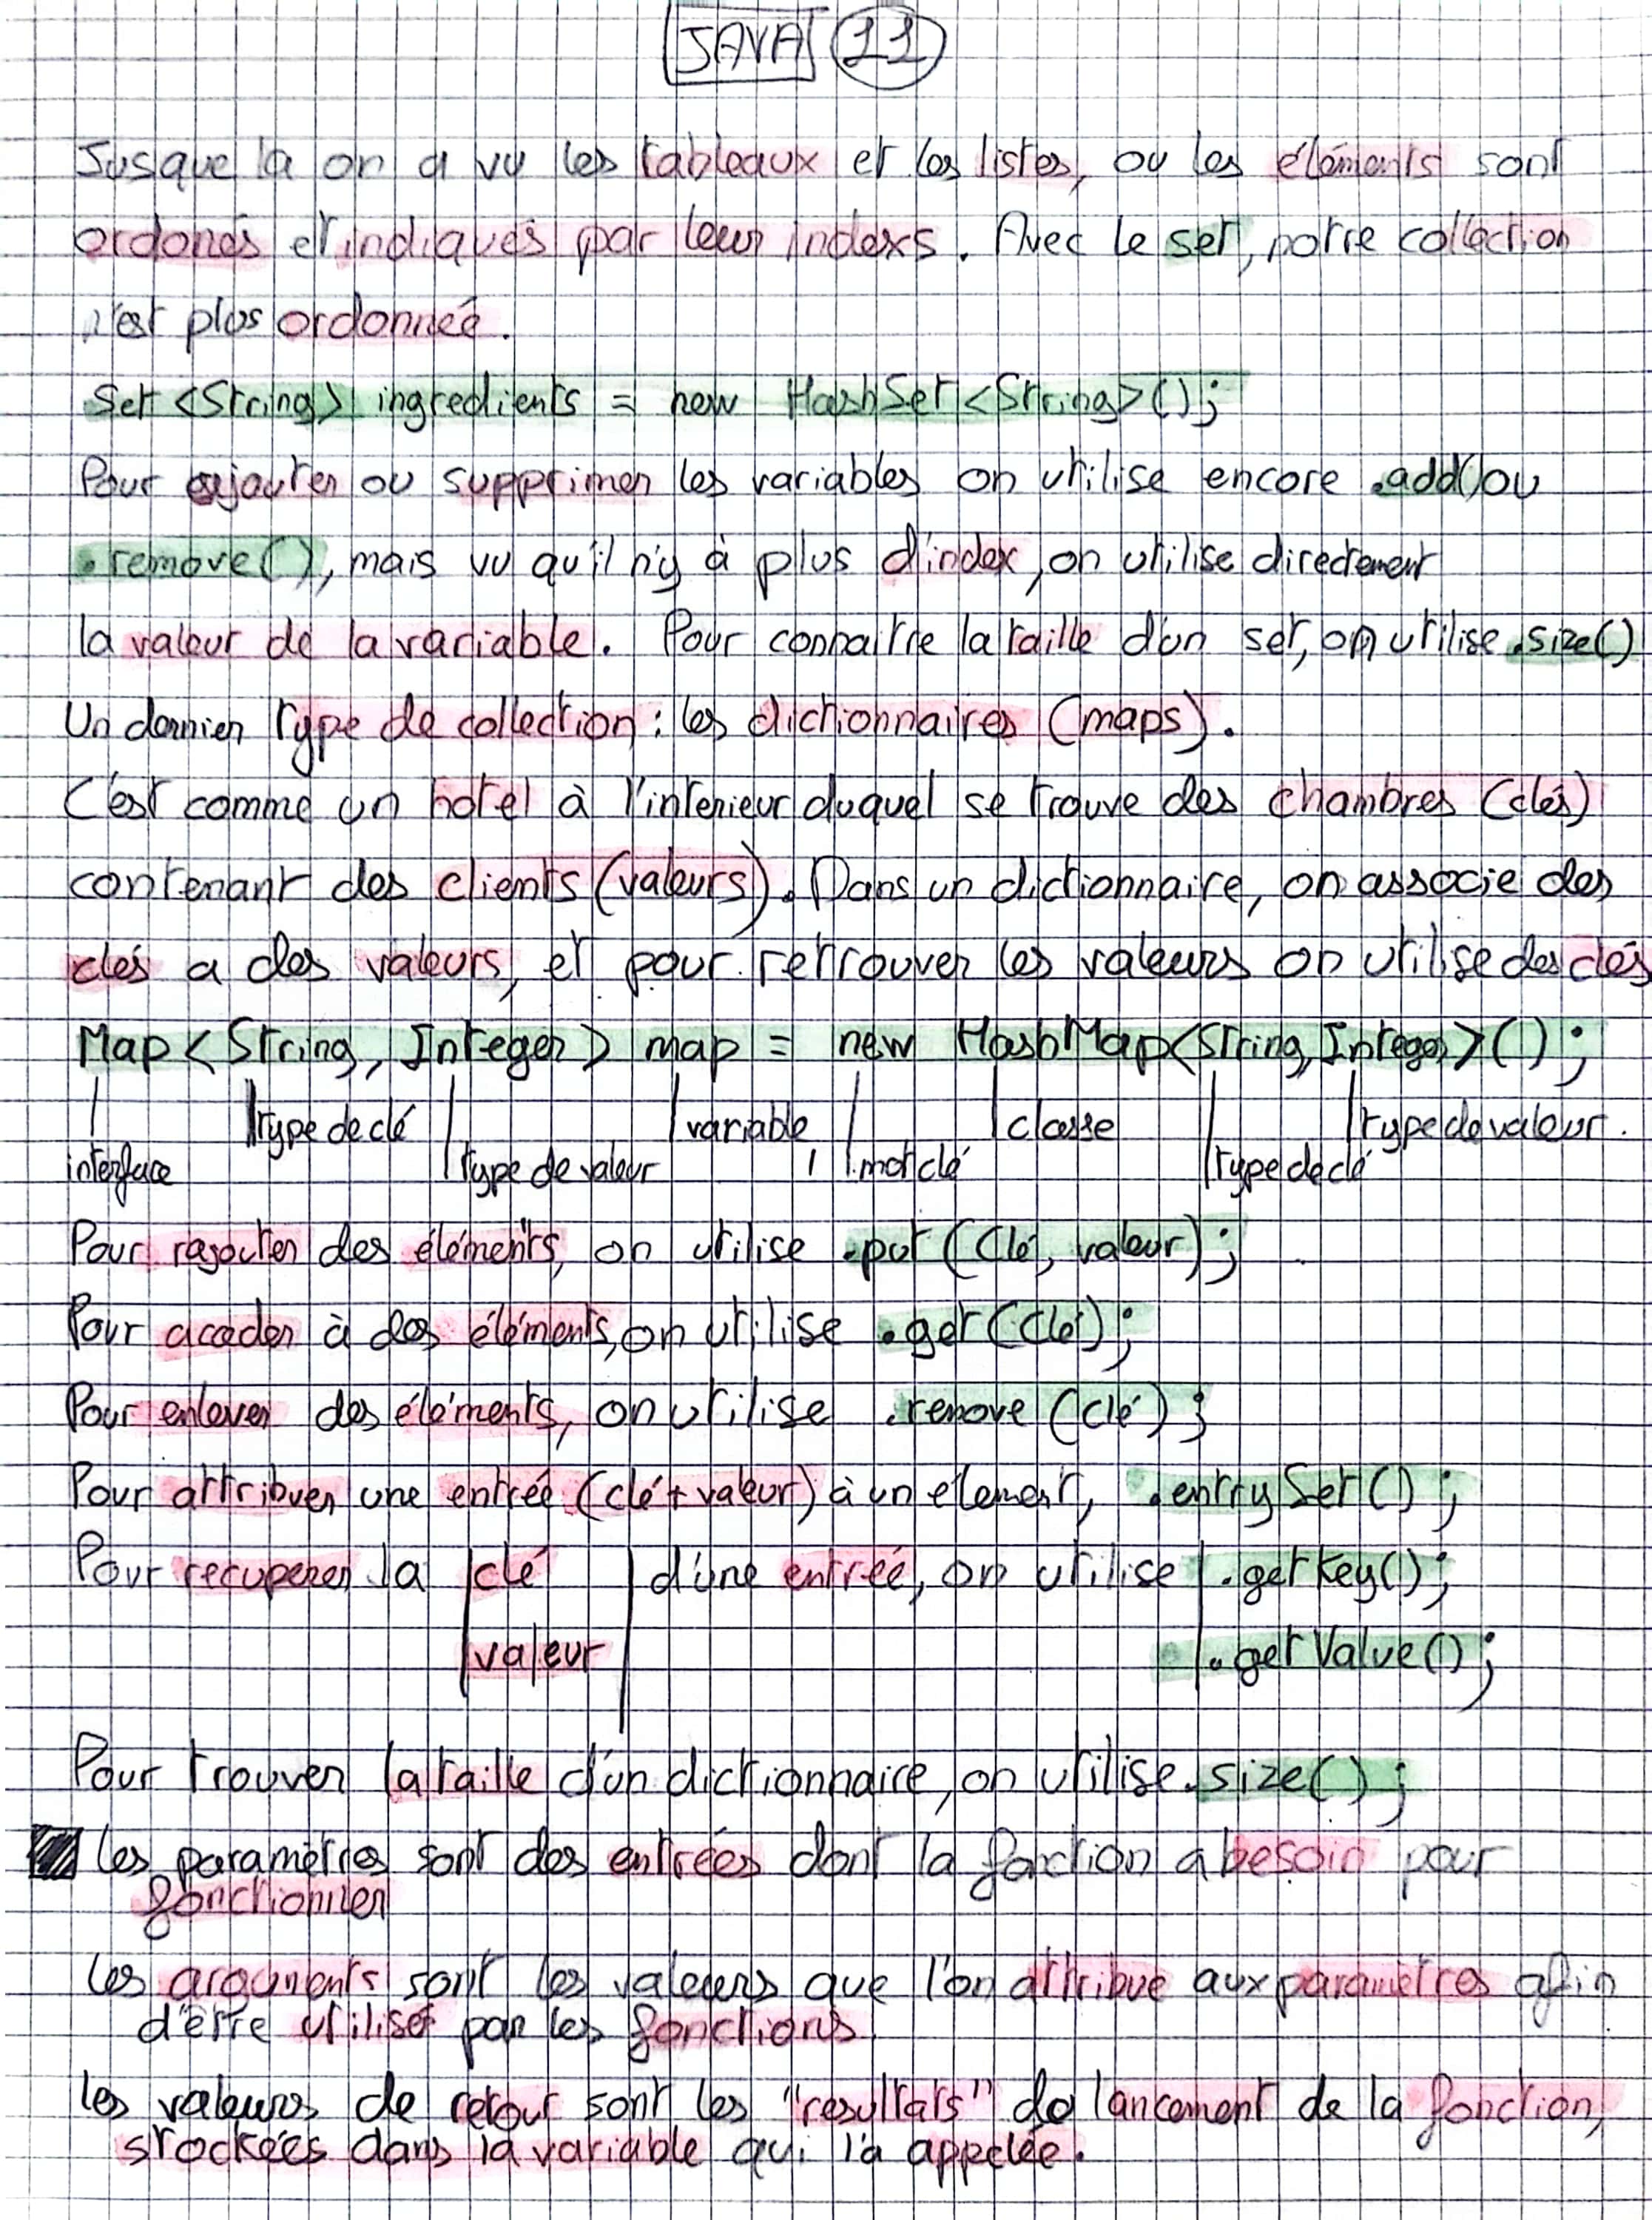 JAVA 11
Jusque la on a vu les tableaux et les listes, ou les éléments sont
ordonés et indiqués par leur indexs. Avec le set, notre collection
n'est plus ordonnée.
Set <String> ingredients = new HashSet <String>();
Pour ajouter ou supprimer les variables on utilise encore .add() ou
.remove(), mais vu qu'il n'y à plus d'index, on utilise directement
la valeur de la variable. Pour connaitre la taille d'un set, on utilise .size()
Un dernier type de collection : les dictionnaires (maps).
C'est comme un hotel à l'interieur duquel se trouve des chambres (clés)
contenant des clients (valeurs). Dans un dictionnaire, on associe des
clés a des valeurs, et pour retrouver les valeurs on utilise des clés
Map <String, Integer> map = new HashMap<String, Integer>();
type de clé variable classe type de valeur.
interface type de valeur mot clé type de clé
Pour rajouter des éléments, on utilise .put (Clé, valeur);
Pour acceder à des éléments, on utilise .get (Clé);
Pour enlever des éléments, on utilise .remove (clé);
Pour attribuer une entrée (clé + valeur) à un élement, .entrySet();
Pour recuperer la clé d'une entrée, on utilise .getKey();
valeur .getValue();
Pour trouver la taille d'un dictionnaire, on utilise .size();
Les paramètres sont des entrées dont la fonction a besoin pour
fonctionner
Les arguments sont les valeurs que l'on attribue aux paramètres afin
d'être utilisés par les fonctions.
Les valeurs de retour sont les "resultats" de lancement de la fonction,
stockées dans la variable qui l'a appelée.